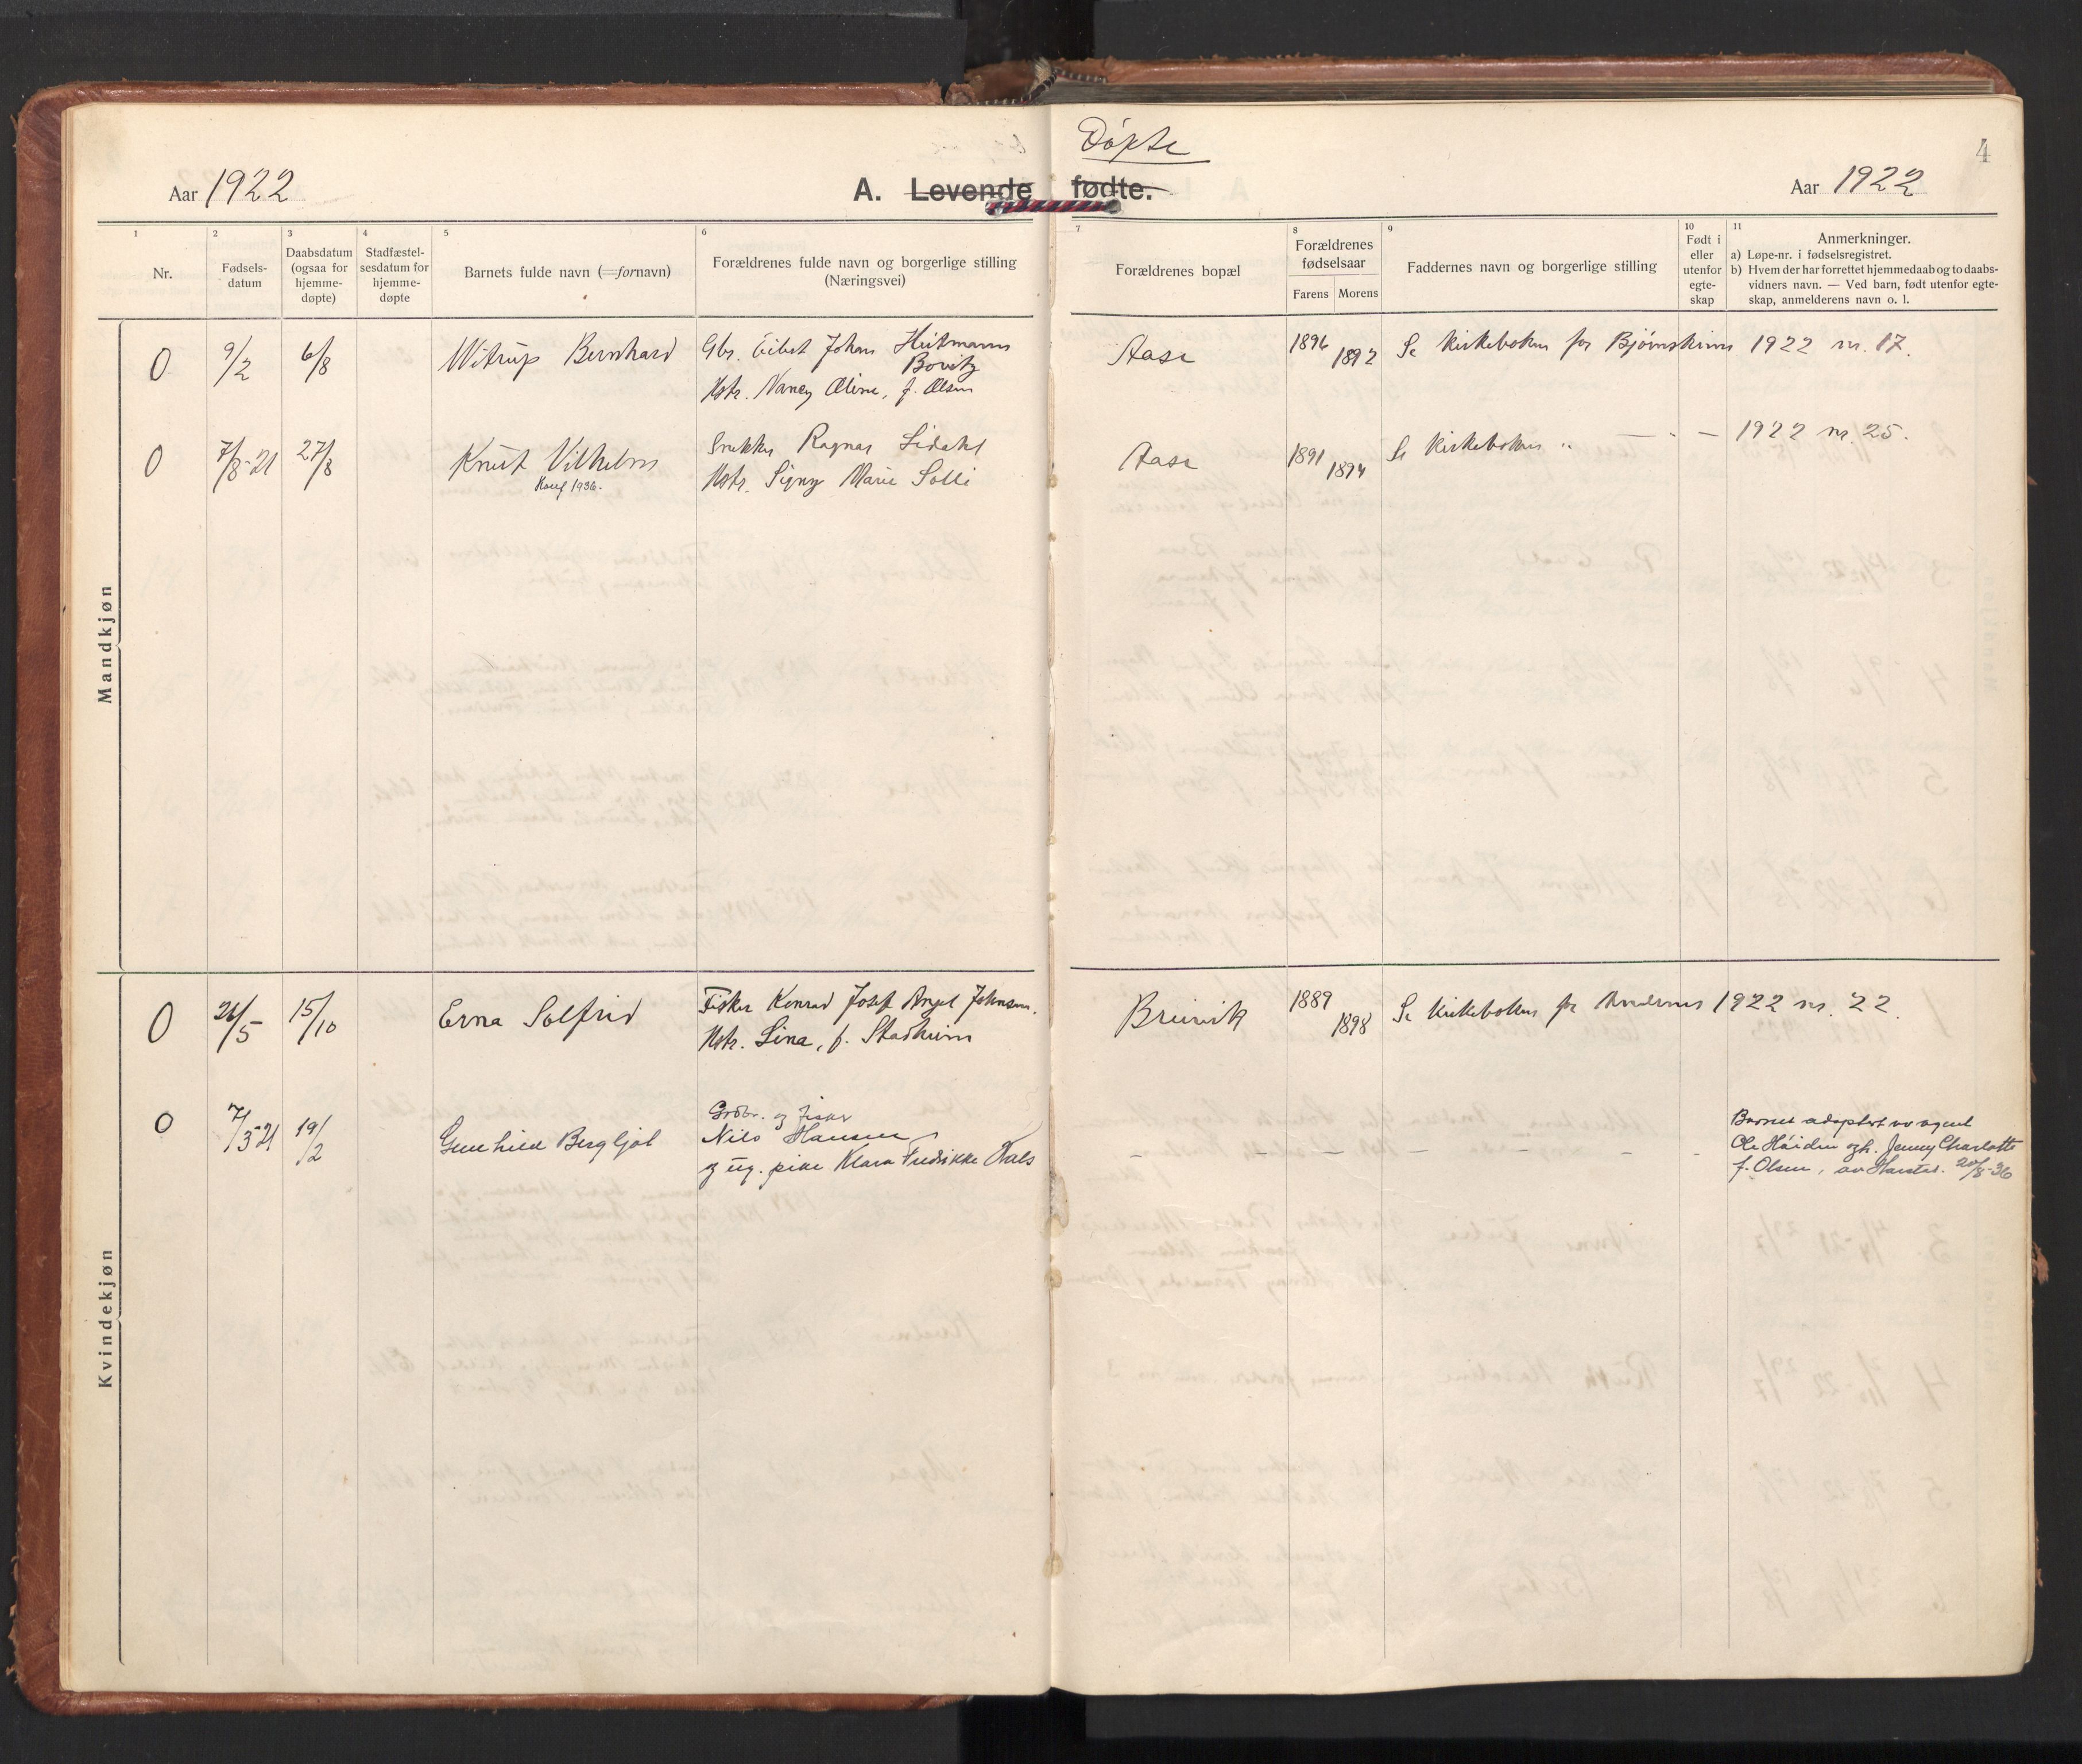 Døpte
4
Aar 1922
A. Levende fødte.
Aar 1922
1
2
3
4
5
6
7
8
9
10
11
Nr.
Fødsels-
datum
Daabsdatum
(ogsaa for
hjemme-
døpte)
Stadfæstel-
sesdatum for
hjemme-
døpte
Barnets fulde navn (=fornavn)
Forældrenes fulde navn og borgerlige stilling
(Næringsvei)
Forældrenes bopæl
Forældrenes
fødselsaar
Farens
Morens
Faddernes navn og borgerlige stilling
Født i
eller
utenfor
egte-
skap
Anmerkninger.
a) Løpe-nr. i fødselsregistret.
b) Hvem der har forrettet hjemmedaab og to daabs-
vidners navn. — Ved barn, født utenfor egte-
skap, anmelderens navn o. l.
Mandkjøn
0 9/2 6/8 Witrup Bernhard Gbr. Johan Heitmann Aase 1896 1892 Se kirkeboken for Bjørnskinn 1922 nr. 17.
Bovitz
Hstr. Nancy Oline, f. Olsen
0 7/8-21 27/8 Knut Vilhelm Snekker Ragnar Lidahl Aase 1891 1894 Se kirkeboken " — " — 1922 nr. 25.
Konf 1936. Hstr. Signy Marie Solli
Kvindekjøn
0 26/5 15/10 Erna Solfrid Fisker Konrad Josef Angel Johnsen. Breivik 1889 1898 Se kirkeboken for Andenes 1922 nr. 22.
Hstr. Lina, f. Stadheim
0 7/5-21 19/2 Gunhild Bergljot Grdbr. og fisker
Nils Hansen
og ug. pike Klara Fredrikke Dals
– – – – – – – – – –
Barnet adoptert av agent
Ole Høiden og h. Jenny Charlotte
f. Olsen, av Harstad. 20/8-36